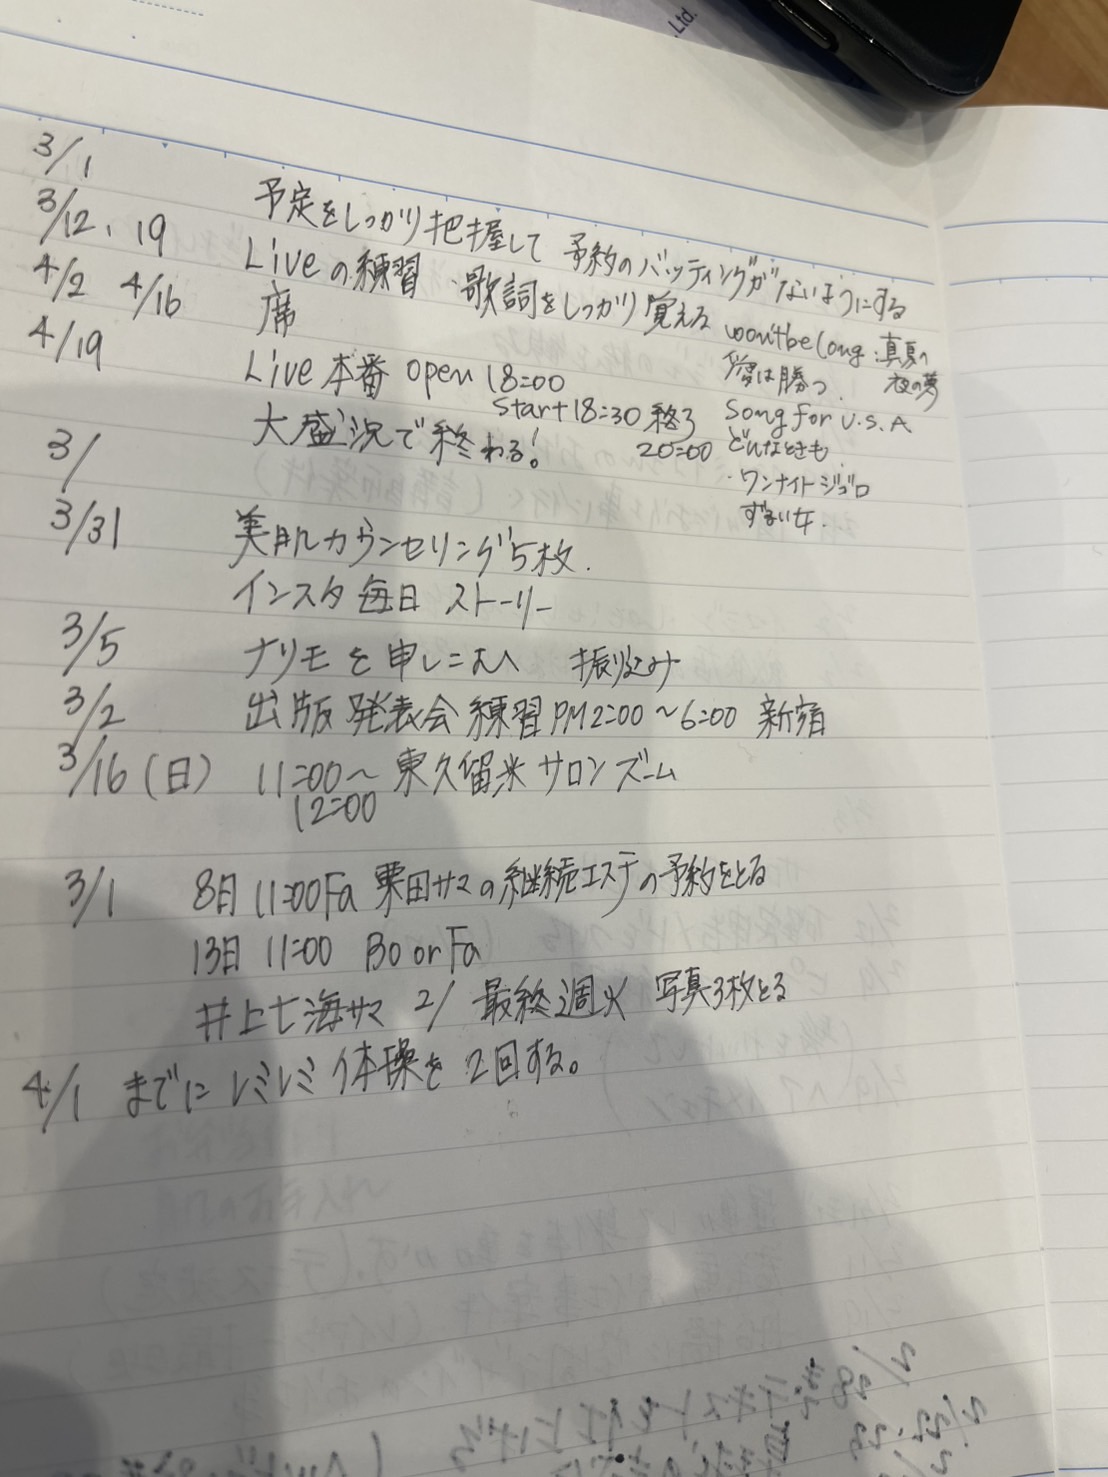 Ltd.
3/1 予定をしっかり把握して 予約のバッティングがないようにする
3/12、19 Liveの練習・歌詞をしっかり覚える won't be long・真夏の
夜の夢
4/2 4/16 席
愛は勝つ.
4/19 Live本番 open 18:00
start 18:30 終了 Song for U.S.A
20:00 どんなときも.
大盛況で終わる!
・ワンナイトジゴロ
ずるい女.
3/
3/31 美肌カウンセリング5枚.
インスタ毎日 ストーリー
3/5 ナリモを申し込む 振り込み
3/2 出版発表会練習PM2:00〜6:00 新宿
3/16(日) 11:00〜 東久留米サロンズーム
12:00
3/1 8日 11:00Fa 栗田サマの継続エステの予約をとる
13日 11:00 Bo or Fa
井上七海サマ 2/ 最終週火 写真3枚とる
4/1 までにレミレミ体操を2回する。